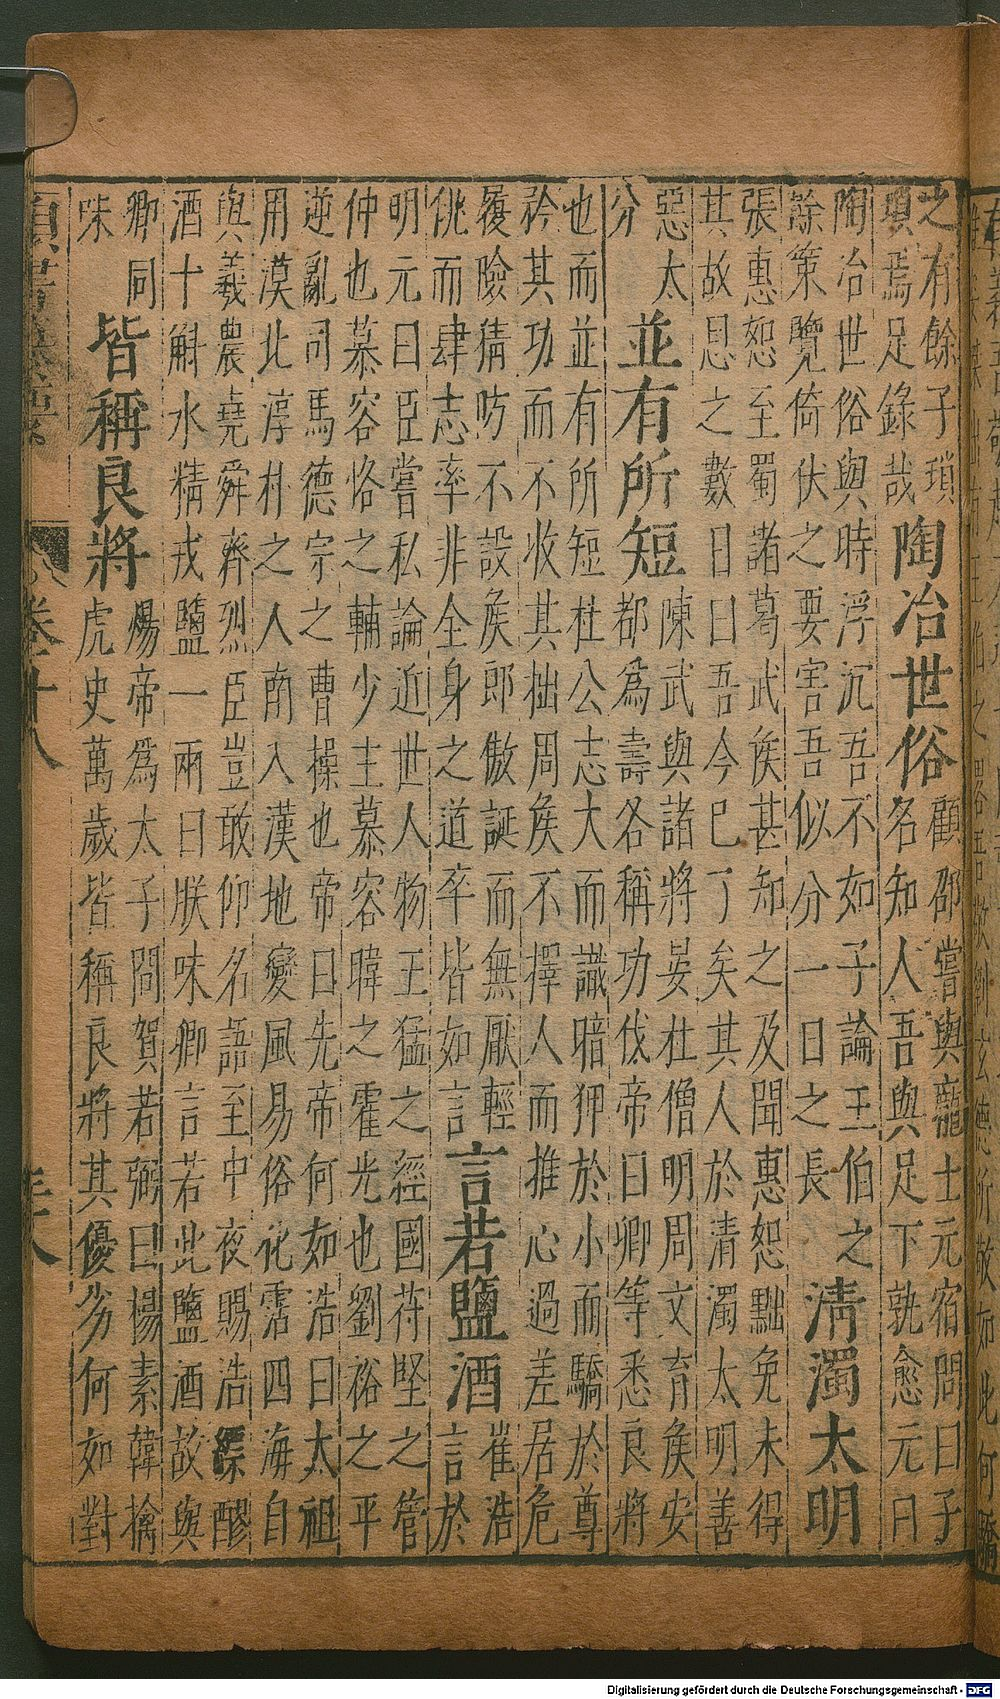 之有餘子瑣
瑣焉足錄哉
陶冶世俗
顧邵嘗與龐士元宿問曰子
名知人吾與足下孰愈元曰
陶冶世俗與時浮沉吾不如子論王伯之
餘策覽倚伏之要害吾似分一日之長
清濁太明
張惠恕至蜀諸葛武侯甚知之及聞惠恕黜免未得
其故思之數日曰吾今已了矣其人於清濁太明善
惡太
分
並有所短
陳武與諸將晏杜僧明周文育侯安
都為壽各稱功伐帝曰卿等悉良將
也而並有所短杜公志大而識暗狎於小而驕於尊
矜其功而不收其拙周侯不擇人而推心過差居危
履險猜防不設侯郎傲誕而無厭輕
佻而肆志率非全身之道卒皆如言
言若鹽酒
崔浩
言於
明元曰臣嘗私論近世人物王猛之經國苻堅之管
仲也慕容恪之輔少主慕容暐之霍光也劉裕之平
逆亂司馬德宗之曹操也帝曰先帝何如浩曰太祖
用漠北淳朴之人南入漢地變風易俗化霑四海自
與羲農堯舜齊烈臣豈敢仰名語至中夜賜浩縹醪
酒十斛水精戎鹽一兩曰朕味卿言若此鹽酒故與
卿同
味
皆稱良將
煬帝為太子問賀若弼曰楊素韓擒
虎史萬歲皆稱良將其優劣何如對
卷十八
Digitalisierung gefördert durch die Deutsche Forschungsgemeinschaft - DFG